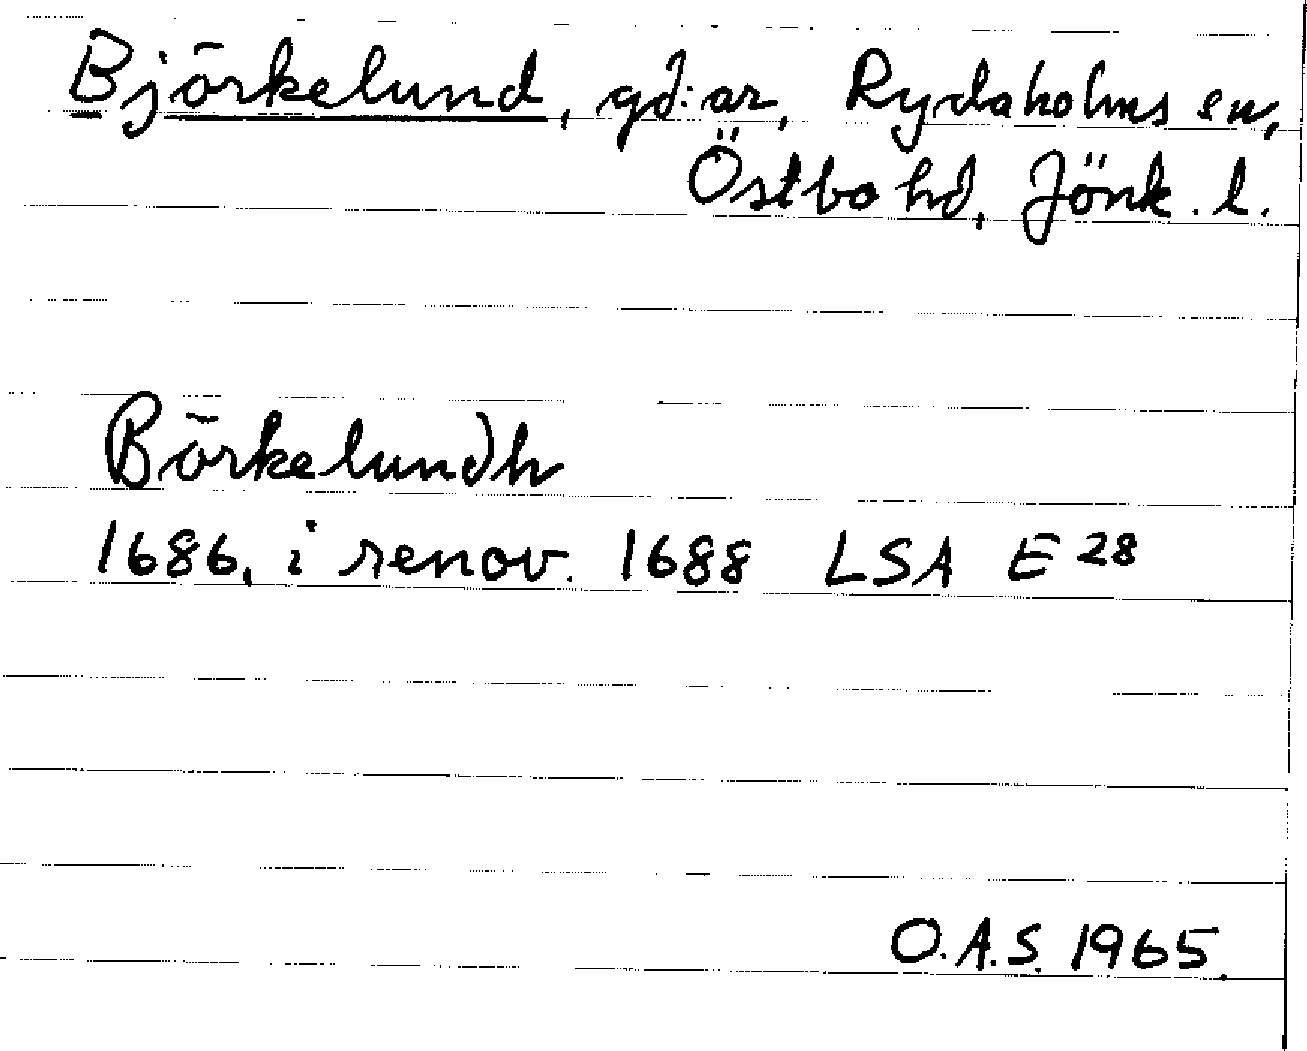 Björkelund, gd:ar, Rydaholms sn,
Östbo hd, Jönk. l.
Börkelundh
1686, i renov. 1688 LSA E 28
O.A.S. 1965.